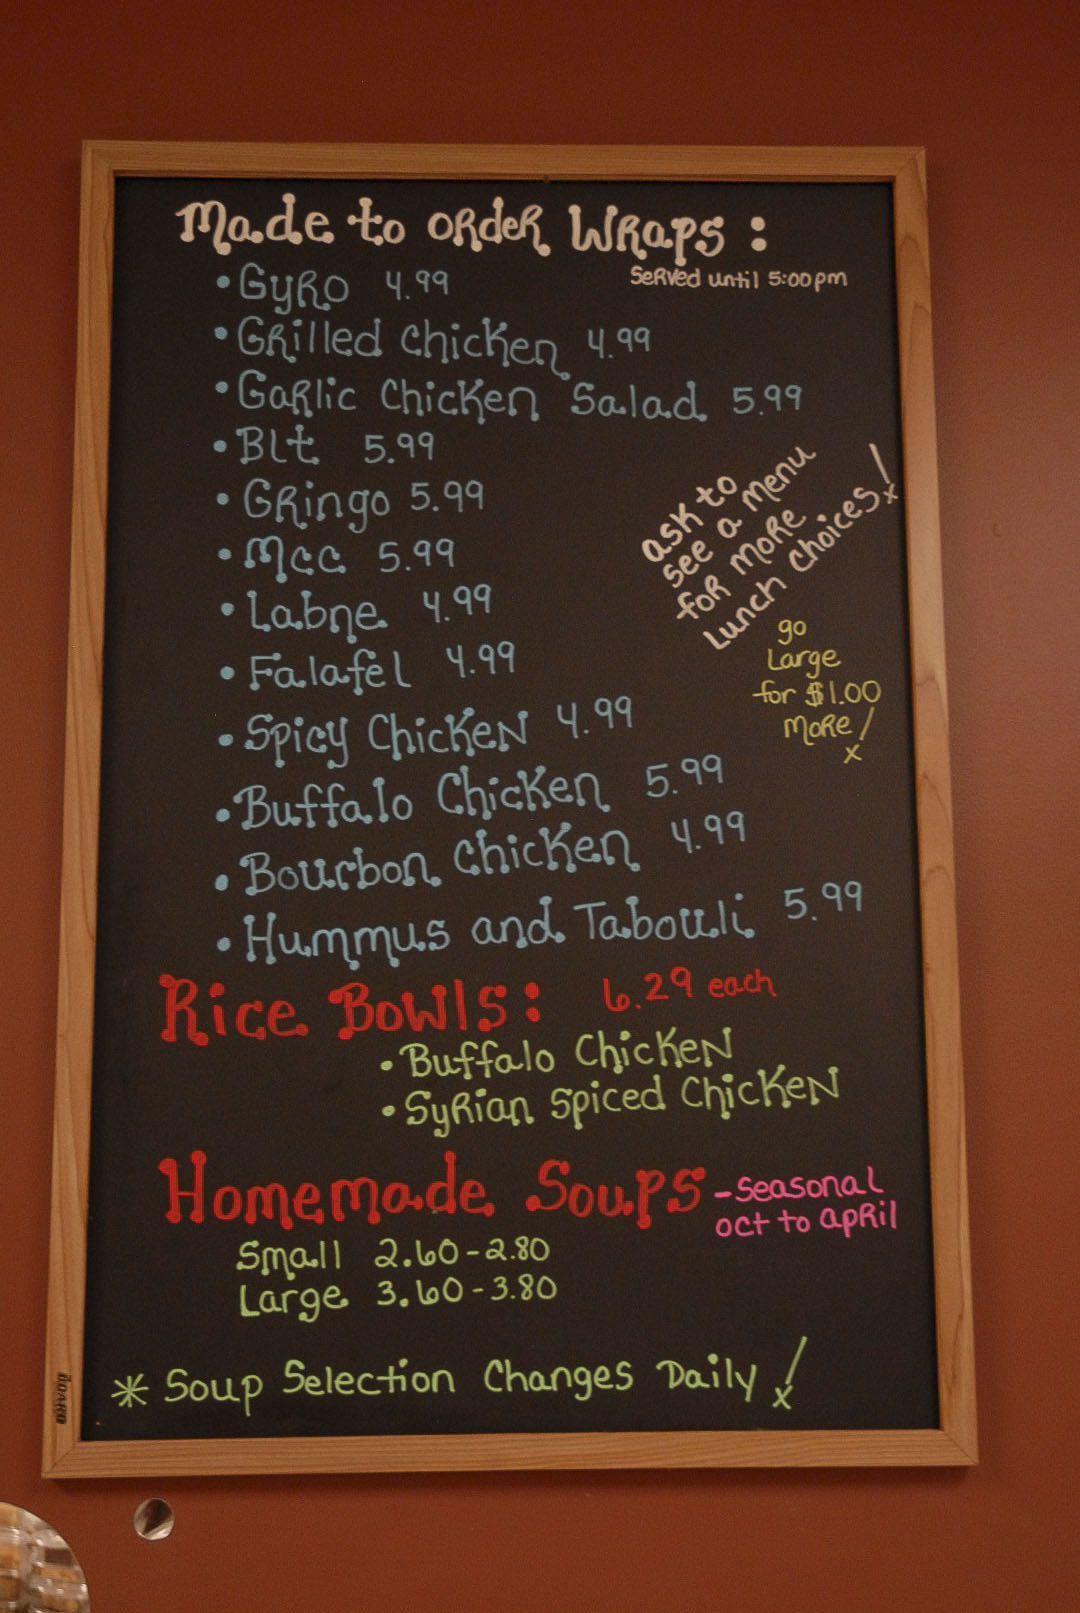 Made to order Wraps:
Served until 5:00pm
• Gyro 4.99
• Grilled Chicken 4.99
• Garlic Chicken Salad 5.99
• Blt 5.99
• Gringo 5.99
• Mcc 5.99
• Labne 4.99
• Falafel 4.99
• Spicy Chicken 4.99
• Buffalo Chicken 5.99
• Bourbon Chicken 4.99
• Hummus and Tabouli 5.99
ask to
see a menu
for more
Lunch choices!
go
Large
for $1.00
more!
Rice Bowls: 6.29 each
• Buffalo Chicken
• Syrian Spiced Chicken
Homemade Soups
-seasonal
oct to april
Small 2.60-2.80
Large 3.60-3.80
* Soup Selection Changes Daily!
BOARD